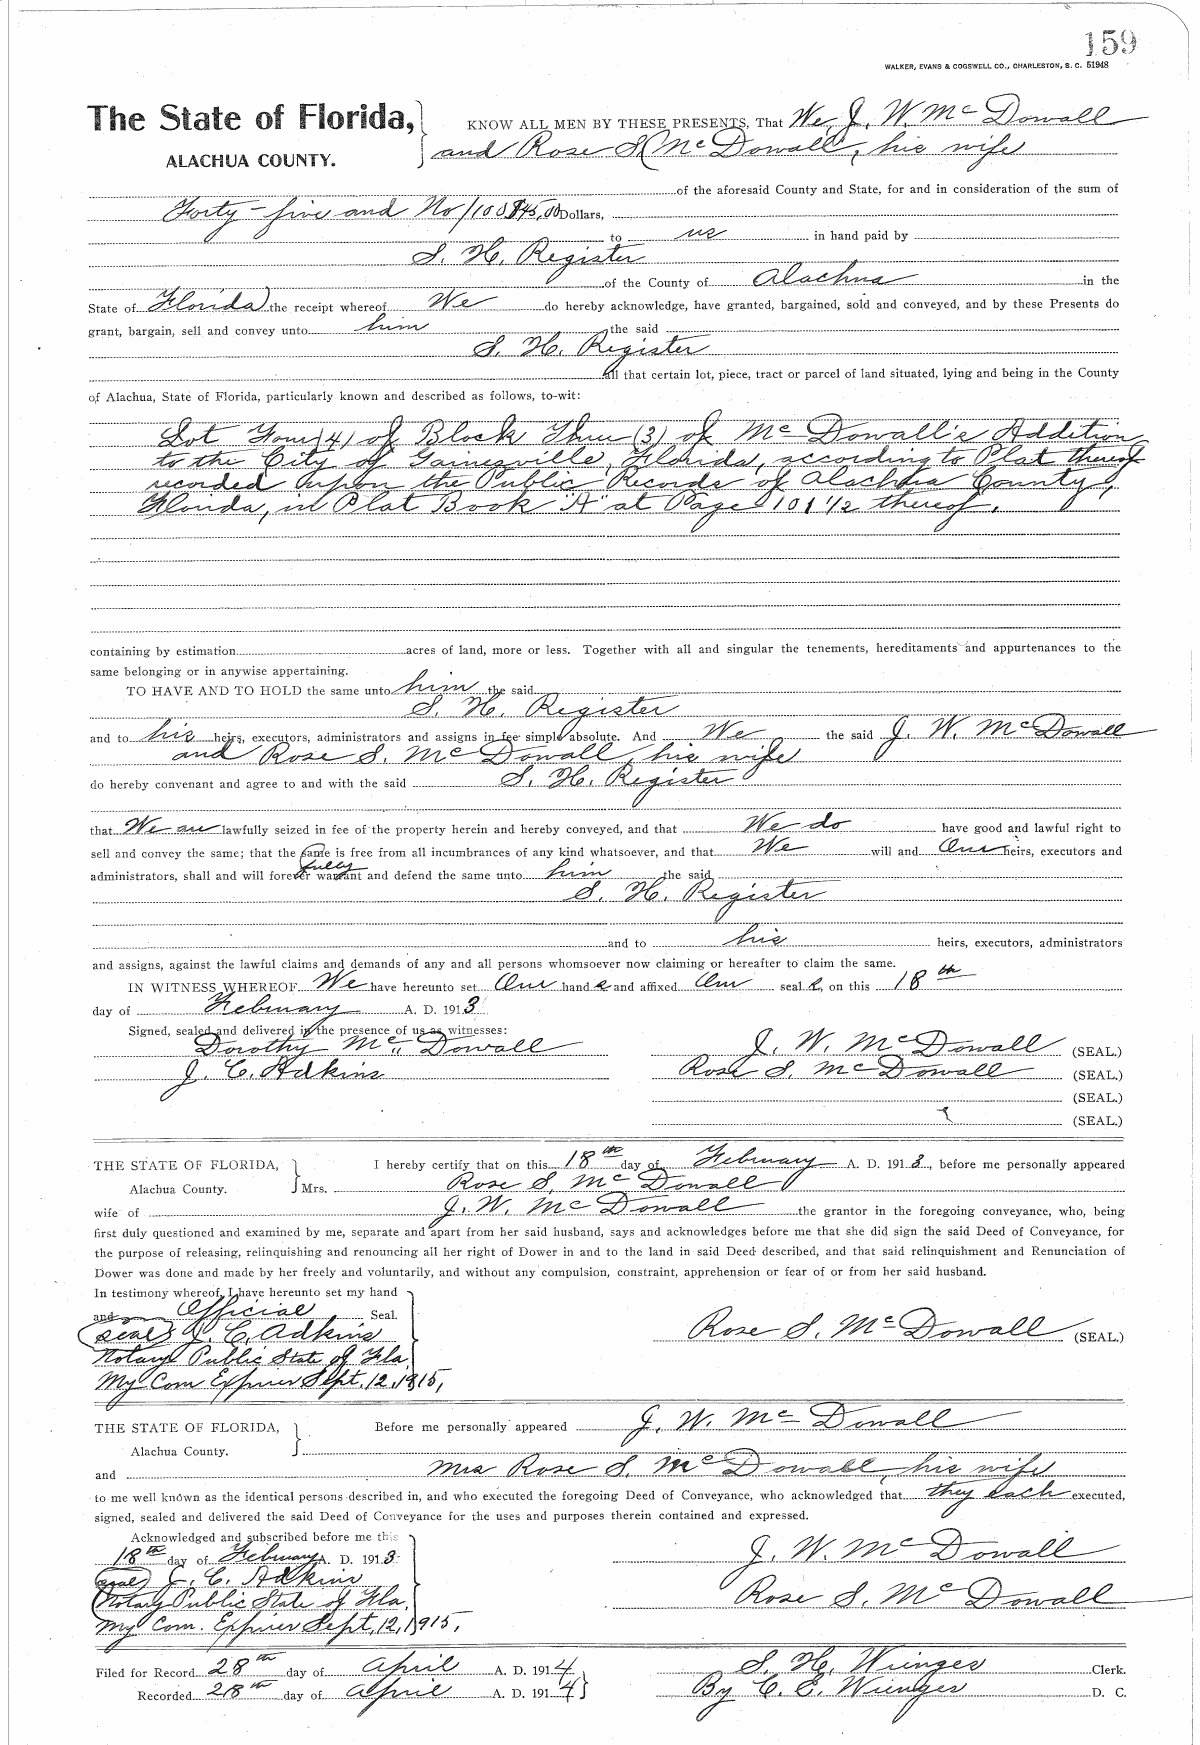 159
WALKER, EVANS & COGSWELL CO., CHARLESTON, S. C. 51948
The State of Florida,
ALACHUA COUNTY.
KNOW ALL MEN BY THESE PRESENTS, That We, J. W. McDowall
and Rose S. McDowall, his wife
of the aforesaid County and State, for and in consideration of the sum of
Forty-five and No/100 $45.00 Dollars,
to us in hand paid by
S. H. Register
of the County of Alachua in the
State of Florida, the receipt whereof We do hereby acknowledge, have granted, bargained, sold and conveyed, and by these Presents do
grant, bargain, sell and convey unto him the said
S. H. Register
all that certain lot, piece, tract or parcel of land situated, lying and being in the County
of Alachua, State of Florida, particularly known and described as follows, to-wit:
Lot Four (4) of Block Three (3) of McDowall's Addition
to the City of Gainesville, Florida, according to Plat thereof
recorded upon the Public Records of Alachua County,
Florida, in Plat Book "A" at Page 101 1/2 thereof.
containing by estimation acres of land, more or less. Together with all and singular the tenements, hereditaments and appurtenances to the
same belonging or in anywise appertaining.
TO HAVE AND TO HOLD the same unto him the said
S. H. Register
and to his heirs, executors, administrators and assigns in fee simple absolute. And We the said J. W. McDowall
and Rose S. McDowall, his wife
do hereby convenant and agree to and with the said S. H. Register
that We are lawfully seized in fee of the property herein and hereby conveyed, and that We do have good and lawful right to
sell and convey the same; that the same is free from all incumbrances of any kind whatsoever, and that We will and Our heirs, executors and
fully
administrators, shall and will forever warrant and defend the same unto him the said
S. H. Register
and to his heirs, executors, administrators
and assigns, against the lawful claims and demands of any and all persons whomsoever now claiming or hereafter to claim the same.
IN WITNESS WHEREOF We have hereunto set Our hand s and affixed Our seal s, on this 18th
day of February A. D. 1913
Signed, sealed and delivered in the presence of us as witnesses:
Dorothy McDowall
J. C. Adkins
J. W. McDowall (SEAL.)
Rose S. McDowall (SEAL.)
(SEAL.)
(SEAL.)
THE STATE OF FLORIDA,
Alachua County.
I hereby certify that on this 18th day of February A. D. 1913, before me personally appeared
Mrs. Rose S. McDowall
wife of J. W. McDowall the grantor in the foregoing conveyance, who, being
first duly questioned and examined by me, separate and apart from her said husband, says and acknowledges before me that she did sign the said Deed of Conveyance, for
the purpose of releasing, relinquishing and renouncing all her right of Dower in and to the land in said Deed described, and that said relinquishment and Renunciation of
Dower was done and made by her freely and voluntarily, and without any compulsion, constraint, apprehension or fear of or from her said husband.
In testimony whereof, I have hereunto set my hand
and Official Seal.
Seal J. C. Adkins
Notary Public State of Fla.
My Com Expires Sept. 12, 1915,
Rose S. McDowall (SEAL.)
THE STATE OF FLORIDA,
Alachua County.
Before me personally appeared J. W. McDowall
and Mrs Rose S. McDowall, his wife
to me well known as the identical persons described in, and who executed the foregoing Deed of Conveyance, who acknowledged that they each executed,
signed, sealed and delivered the said Deed of Conveyance for the uses and purposes therein contained and expressed.
Acknowledged and subscribed before me this
18th day of February A. D. 1913
Seal J. C. Adkins
Notary Public State of Fla.
My Com. Expires Sept. 12, 1915,
J. W. McDowall
Rose S. McDowall
Filed for Record 28th day of April A. D. 1914
Recorded 28th day of April A. D. 1914
S. H. Wienges Clerk.
By C. E. Wienges D. C.